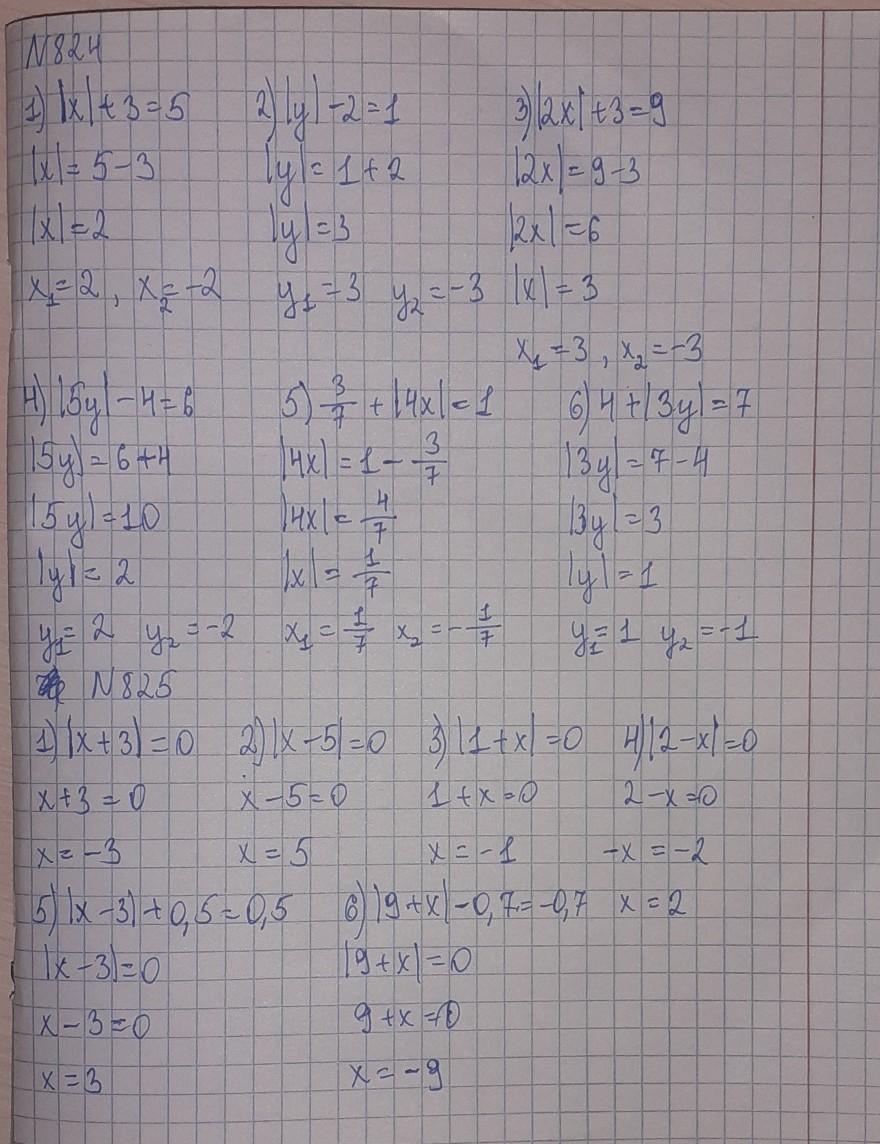 N824
1) |x| + 3 = 5   2) |y| - 2 = 1   3) |2x| + 3 = 9
|x| = 5 - 3   |y| = 1 + 2   |2x| = 9 - 3
|x| = 2   |y| = 3   |2x| = 6
x₁ = 2 , x₂ = -2   y₁ = 3   y₂ = -3   |x| = 3
x₁ = 3 , x₂ = -3
4) |5y| - 4 = 6   5) 3/7 + |4x| = 1   6) 4 + |3y| = 7
|5y| = 6 + 4   |4x| = 1 - 3/7   |3y| = 7 - 4
|5y| = 10   |4x| = 4/7   |3y| = 3
|y| = 2   |x| = 1/7   |y| = 1
y₁ = 2   y₂ = -2   x₁ = 1/7   x₂ = -1/7   y₁ = 1   y₂ = -1
N825
1) |x + 3| = 0   2) |x - 5| = 0   3) |1 + x| = 0   4) |2 - x| = 0
x + 3 = 0   x - 5 = 0   1 + x = 0   2 - x = 0
x = -3   x = 5   x = -1   -x = -2
5) |x - 3| + 0,5 = 0,5   6) |9 + x| - 0,7 = -0,7   x = 2
|x - 3| = 0   |9 + x| = 0
x - 3 = 0   9 + x = 0
x = 3   x = -9